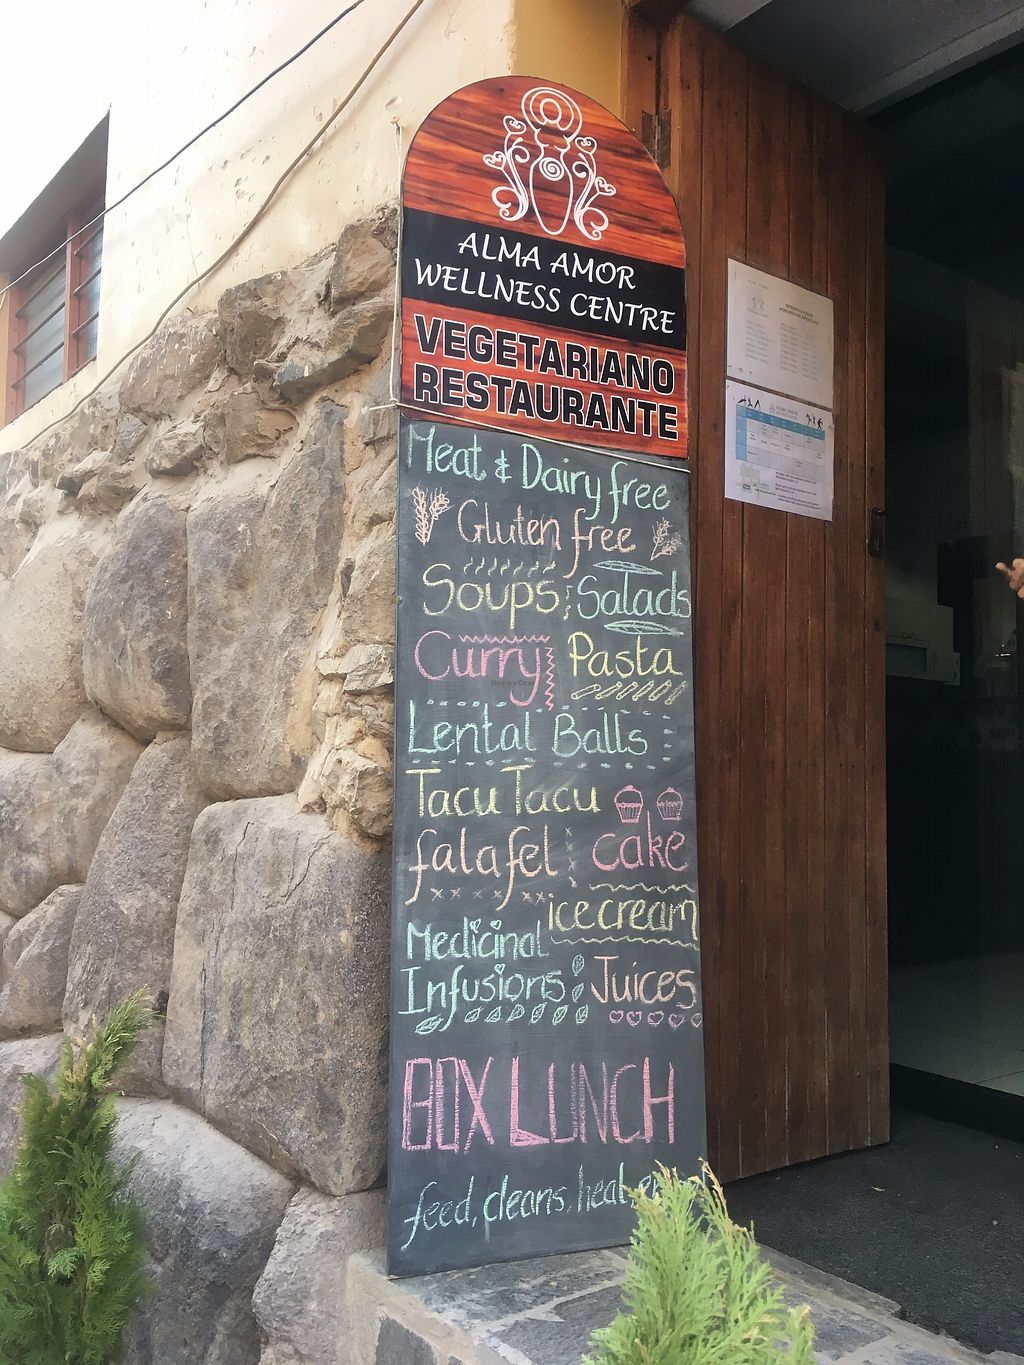 ALMA AMOR
WELLNESS CENTRE
VEGETARIANO
RESTAURANTE
Meat & Dairy free
Gluten free
Soups Salads
Curry Pasta
Lental Balls
Tacu Tacu
falafel cake
icecream
Medicinal
Infusions Juices
BOX LUNCH
feed, cleans, heal
ALMA AMOR